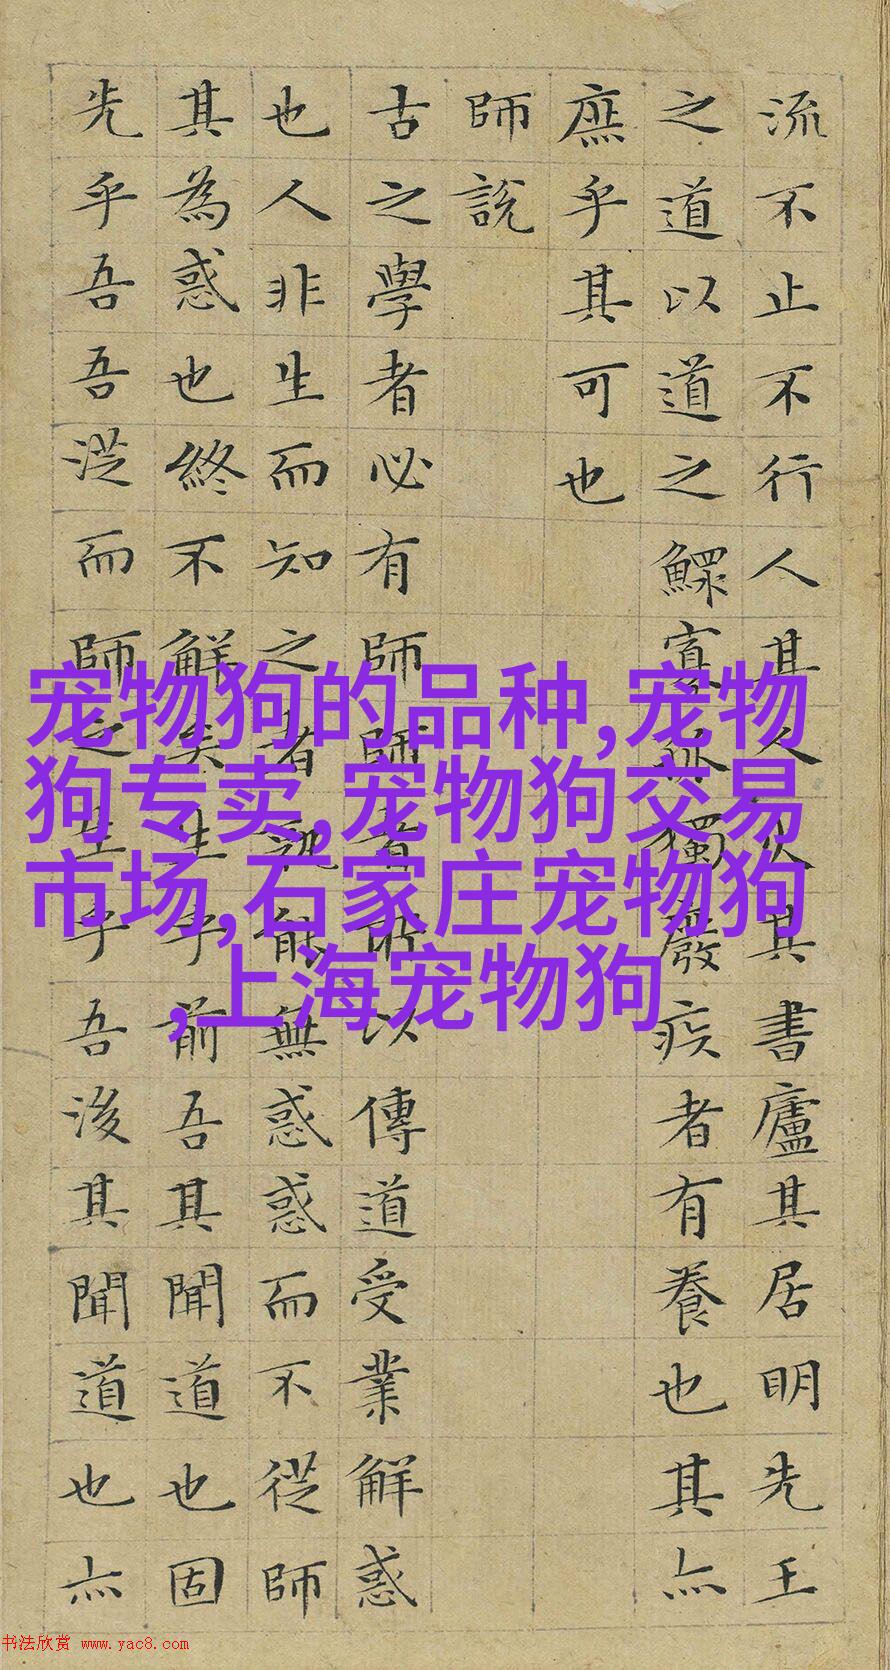 流不止不行人其人火其書廬其居明先王
之道以道之鰥寡孤獨廢疾者有養也其亦
庶乎其可也
師說
古之學者必有師師者所以傳道受業解惑
也人非生而知之者孰能無惑惑而不從師
其為惑也終不解矣生乎前吾其聞道也固
先乎吾吾從而師之生乎吾後其聞道也亦
宠物狗的品种,宠物
狗专卖,宠物狗交易
市场,石家庄宠物狗
,上海宠物狗
书法欣赏 www.yac8.com